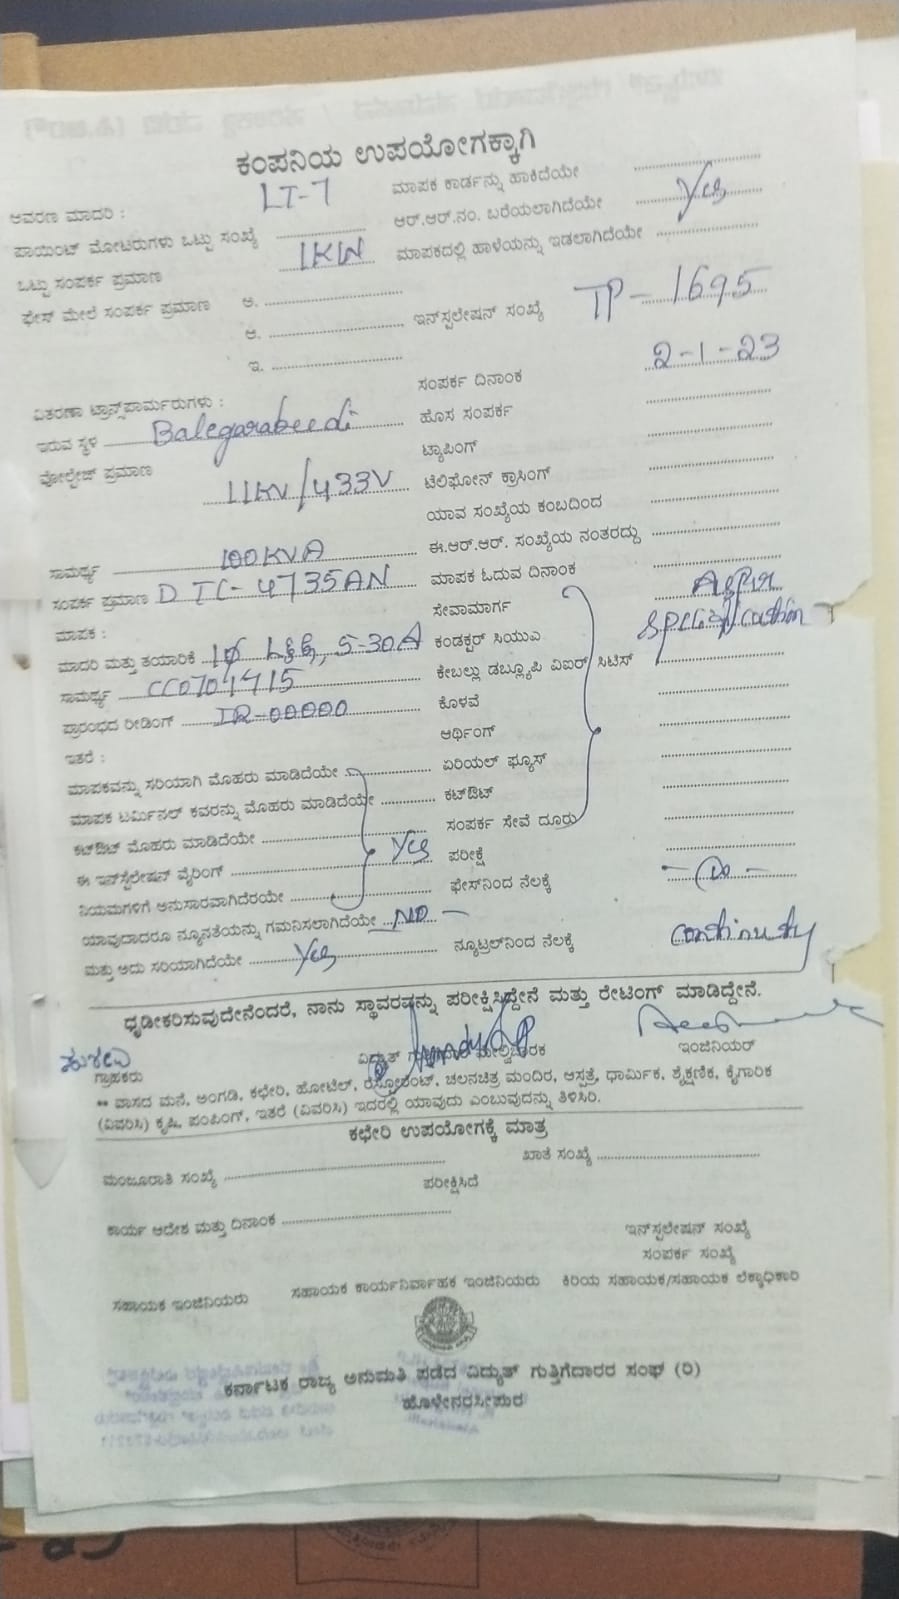 ಕಂಪನಿಯ ಉಪಯೋಗಕ್ಕಾಗಿ
ಆವರಣ ಮಾದರಿ : LT-7
ಪಾಯಿಂಟ್ ಮೋಟರುಗಳು ಒಟ್ಟು ಸಂಖ್ಯೆ
ಒಟ್ಟು ಸಂಪರ್ಕ ಪ್ರಮಾಣ 1KW
ಫೇಸ್ ಮೇಲೆ ಸಂಪರ್ಕ ಪ್ರಮಾಣ ಅ.
ಆ.
ಇ.
ವಿತರಣಾ ಟ್ರಾನ್ಸ್‌ಫಾರ್ಮರುಗಳು :
ಇರುವ ಸ್ಥಳ Balegarabeedi
ವೋಲ್ಟೇಜ್ ಪ್ರಮಾಣ 11KV/433V
ಸಾಮರ್ಥ್ಯ 100KVA
ಸಂಪರ್ಕ ಪ್ರಮಾಣ DTC-4735AN
ಮಾಪಕ :
ಮಾದರಿ ಮತ್ತು ತಯಾರಿಕೆ 1φ L&G, 5-30A
ಸಾಮರ್ಥ್ಯ
ಪ್ರಾರಂಭದ ರೀಡಿಂಗ್ IR-00000
ಇತರೆ :
ಮಾಪಕವನ್ನು ಸರಿಯಾಗಿ ಮೊಹರು ಮಾಡಿದೆಯೇ
ಮಾಪಕ ಟರ್ಮಿನಲ್ ಕವರನ್ನು ಮೊಹರು ಮಾಡಿದೆಯೇ
ಕಟ್‌ಔಟ್ ಮೊಹರು ಮಾಡಿದೆಯೇ
ಈ ಇನ್‌ಸ್ಟಲೇಷನ್ ವೈರಿಂಗ್ Yes
ನಿಯಮಗಳಿಗೆ ಅನುಸಾರವಾಗಿದೆಯೇ
ಯಾವುದಾದರೂ ನ್ಯೂನತೆಯನ್ನು ಗಮನಿಸಲಾಗಿದೆಯೇ NO -
ಮತ್ತು ಅದು ಸರಿಯಾಗಿದೆಯೇ Yes
ಮಾಪಕ ಕಾರ್ಡನ್ನು ಹಾಕಿದೆಯೇ
ಆರ್.ಆರ್.ನಂ. ಬರೆಯಲಾಗಿದೆಯೇ Yes
ಮಾಪಕದಲ್ಲಿ ಹಾಳೆಯನ್ನು ಇಡಲಾಗಿದೆಯೇ
ಇನ್‌ಸ್ಟಲೇಷನ್ ಸಂಖ್ಯೆ TP-1695
ಸಂಪರ್ಕ ದಿನಾಂಕ 2-1-23
ಹೊಸ ಸಂಪರ್ಕ
ಟ್ಯಾಪಿಂಗ್
ಟೆಲಿಫೋನ್ ಕ್ರಾಸಿಂಗ್
ಯಾವ ಸಂಖ್ಯೆಯ ಕಂಬದಿಂದ
ಈ.ಆರ್.ಆರ್. ಸಂಖ್ಯೆಯ ನಂತರದ್ದು
ಮಾಪಕ ಓದುವ ದಿನಾಂಕ
ಸೇವಾಮಾರ್ಗ
ಕಂಡಕ್ಟರ್ ಸಿಯುಎ
ಕೇಬಲ್ಲು ಡಬ್ಲ್ಯೂಪಿ ವಿಐರ್ ಸಿಟಿಸ್
ಕೊಳವೆ
ಆರ್ಥಿಂಗ್
ಏರಿಯಲ್ ಫ್ಯೂಸ್
ಕಟ್‌ಔಟ್
ಸಂಪರ್ಕ ಸೇವೆ ದೂರು
ಪರೀಕ್ಷೆ
ಫೇಸ್‌ನಿಂದ ನೆಲಕ್ಕೆ
ನ್ಯೂಟ್ರಲ್‌ನಿಂದ ನೆಲಕ್ಕೆ continuty
ಧೃಡೀಕರಿಸುವುದೇನೆಂದರೆ, ನಾನು ಸ್ಥಾವರವನ್ನು ಪರೀಕ್ಷಿಸಿದ್ದೇನೆ ಮತ್ತು ರೇಟಿಂಗ್ ಮಾಡಿದ್ದೇನೆ.
ಗ್ರಾಹಕರು ವಿದ್ಯುತ್ ಮೇಲ್ವಿಚಾರಕ ಇಂಜಿನಿಯರ್
** ವಾಸದ ಮನೆ, ಅಂಗಡಿ, ಕಛೇರಿ, ಹೋಟೆಲ್, ರೆಸ್ಟೋರೆಂಟ್, ಚಲನಚಿತ್ರ ಮಂದಿರ, ಆಸ್ಪತ್ರೆ, ಧಾರ್ಮಿಕ, ಶೈಕ್ಷಣಿಕ, ಕೈಗಾರಿಕ
(ವಿವರಿಸಿ) ಕೃಷಿ, ಪಂಪಿಂಗ್, ಇತರೆ (ವಿವರಿಸಿ) ಇದರಲ್ಲಿ ಯಾವುದು ಎಂಬುವುದನ್ನು ತಿಳಿಸಿರಿ.
ಕಛೇರಿ ಉಪಯೋಗಕ್ಕೆ ಮಾತ್ರ
ಮಂಜೂರಾತಿ ಸಂಖ್ಯೆ ಖಾತೆ ಸಂಖ್ಯೆ
ಪರೀಕ್ಷಿಸಿದೆ
ಕಾರ್ಯ ಆದೇಶ ಮತ್ತು ದಿನಾಂಕ
ಇನ್‌ಸ್ಟಲೇಷನ್ ಸಂಖ್ಯೆ
ಸಂಪರ್ಕ ಸಂಖ್ಯೆ
ಸಹಾಯಕ ಇಂಜಿನಿಯರು ಸಹಾಯಕ ಕಾರ್ಯನಿರ್ವಾಹಕ ಇಂಜಿನಿಯರು ಕಿರಿಯ ಸಹಾಯಕ/ಸಹಾಯಕ ಲೆಕ್ಕಾಧಿಕಾರಿ
ಕರ್ನಾಟಕ ರಾಜ್ಯ ಅನುಮತಿ ಪಡೆದ ವಿದ್ಯುತ್ ಗುತ್ತಿಗೆದಾರರ ಸಂಘ (ರಿ)
ಹೊಳೇನರಸೀಪುರ